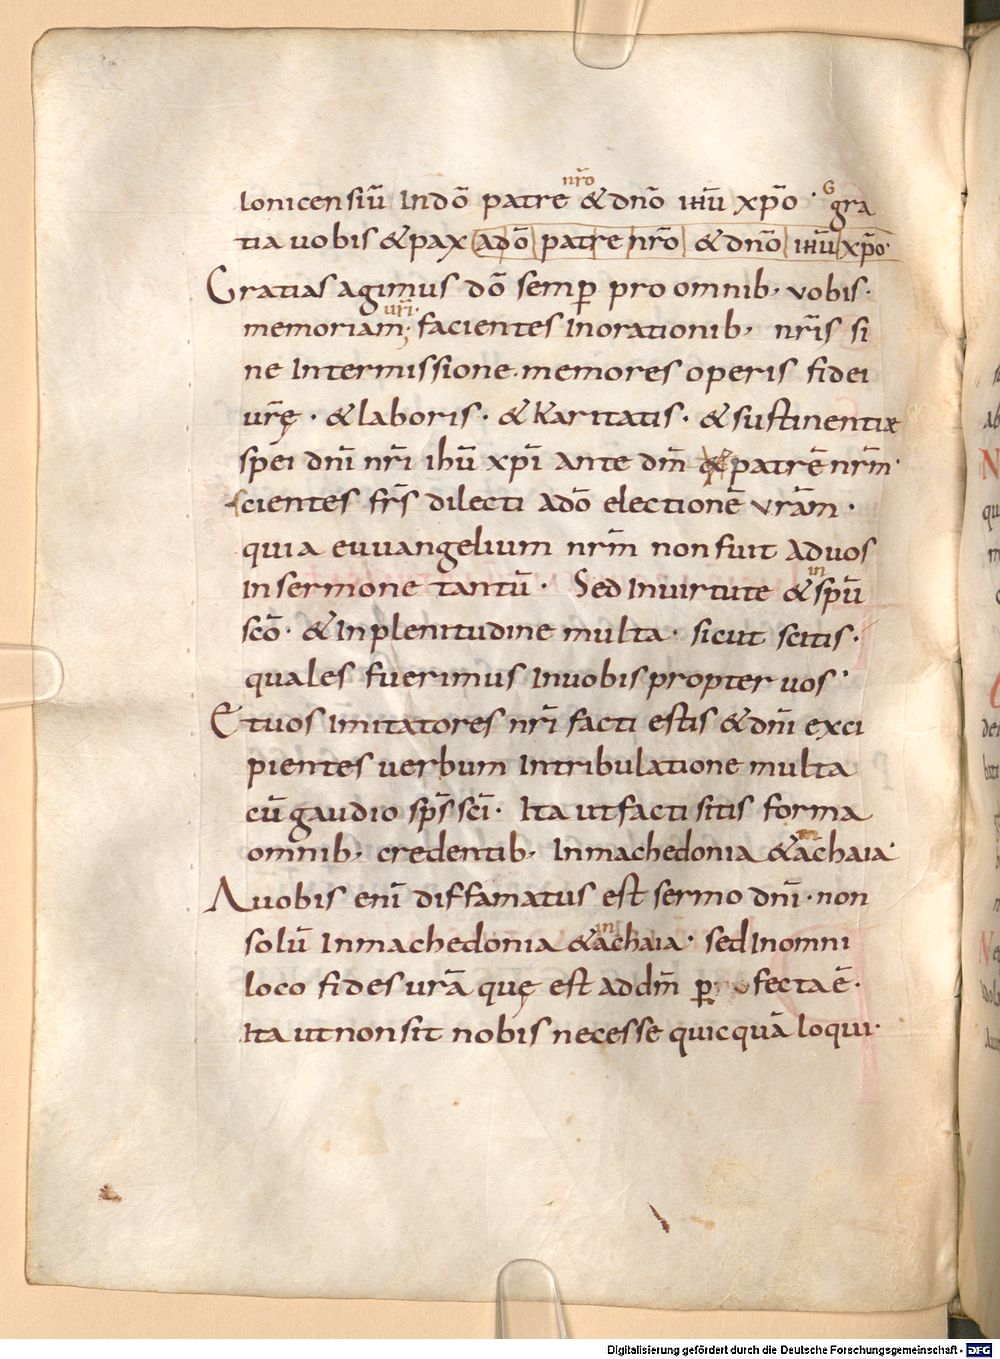 lonicensiū Indō patre nr̄o &dnō ihū xpō · G gra
tia uobis &pax adō patre nr̄o &dnō ihū xpō·
Gratias agimus dō semp̄ pro omnib· vobis·
memoriam ur̄i· facientes Inorationib· nr̄is si
ne Intermissione·memores operis fidei
ur̄ę · &laboris· &Karitatis· &sustinentiæ
spei dnī nr̄i ihū xpī Ante dm̄ & patrē nr̄m·
scientes fr̄s dilecti Adō electionē vrām ·
quia euuangelium nr̄m non fuit Aduos
In sermone tantū · Sed Inuirtute & in spū
scō· &Inplenitudine multa· sicut scitis·
quales fuerimus Inuobis propter uos·
Etuos Imitatores nr̄i facti estis &dnī exci
pientes uerbum Intribulatione multa
cū gaudio sps̄ scī· Ita ut facti sitis forma
omnib· credentib· Inmachedonia &achaia·
Auobis enī diffamatus est sermo dnī·non
solū Inmachedonia & in achaia· sed Inomni
loco fides urā quę est addm̄ p fecta ē·
Ita utnonsit nobis necesse quicquā loqui·
Digitalisierung gefördert durch die Deutsche Forschungsgemeinschaft - DFG